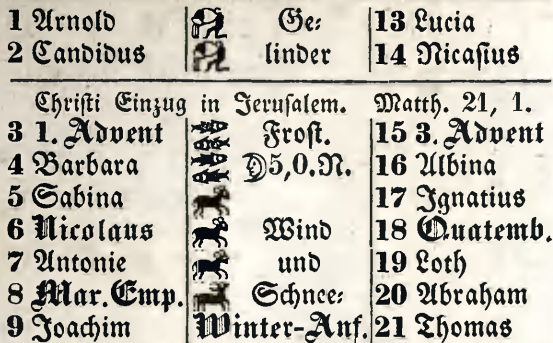 1 Arnold Ge⸗ 13 Lucia
2 Candidus linder 14 Nicaſius
Chriſti Einzug in Jeruſalem. Matth. 21, 1.
3 1. Advent Froſt. 15 3. Advent
4 Barbara 5,0.N. 16 Albina
5 Sabina 17 Ignatius
6 Nicolaus Wind 18 Quatemb.
7 Antonie und 19 Loth
8 Mar. Emp. Schnee⸗ 20 Abraham
9 Joachim Winter-Anf. 21 Thomas